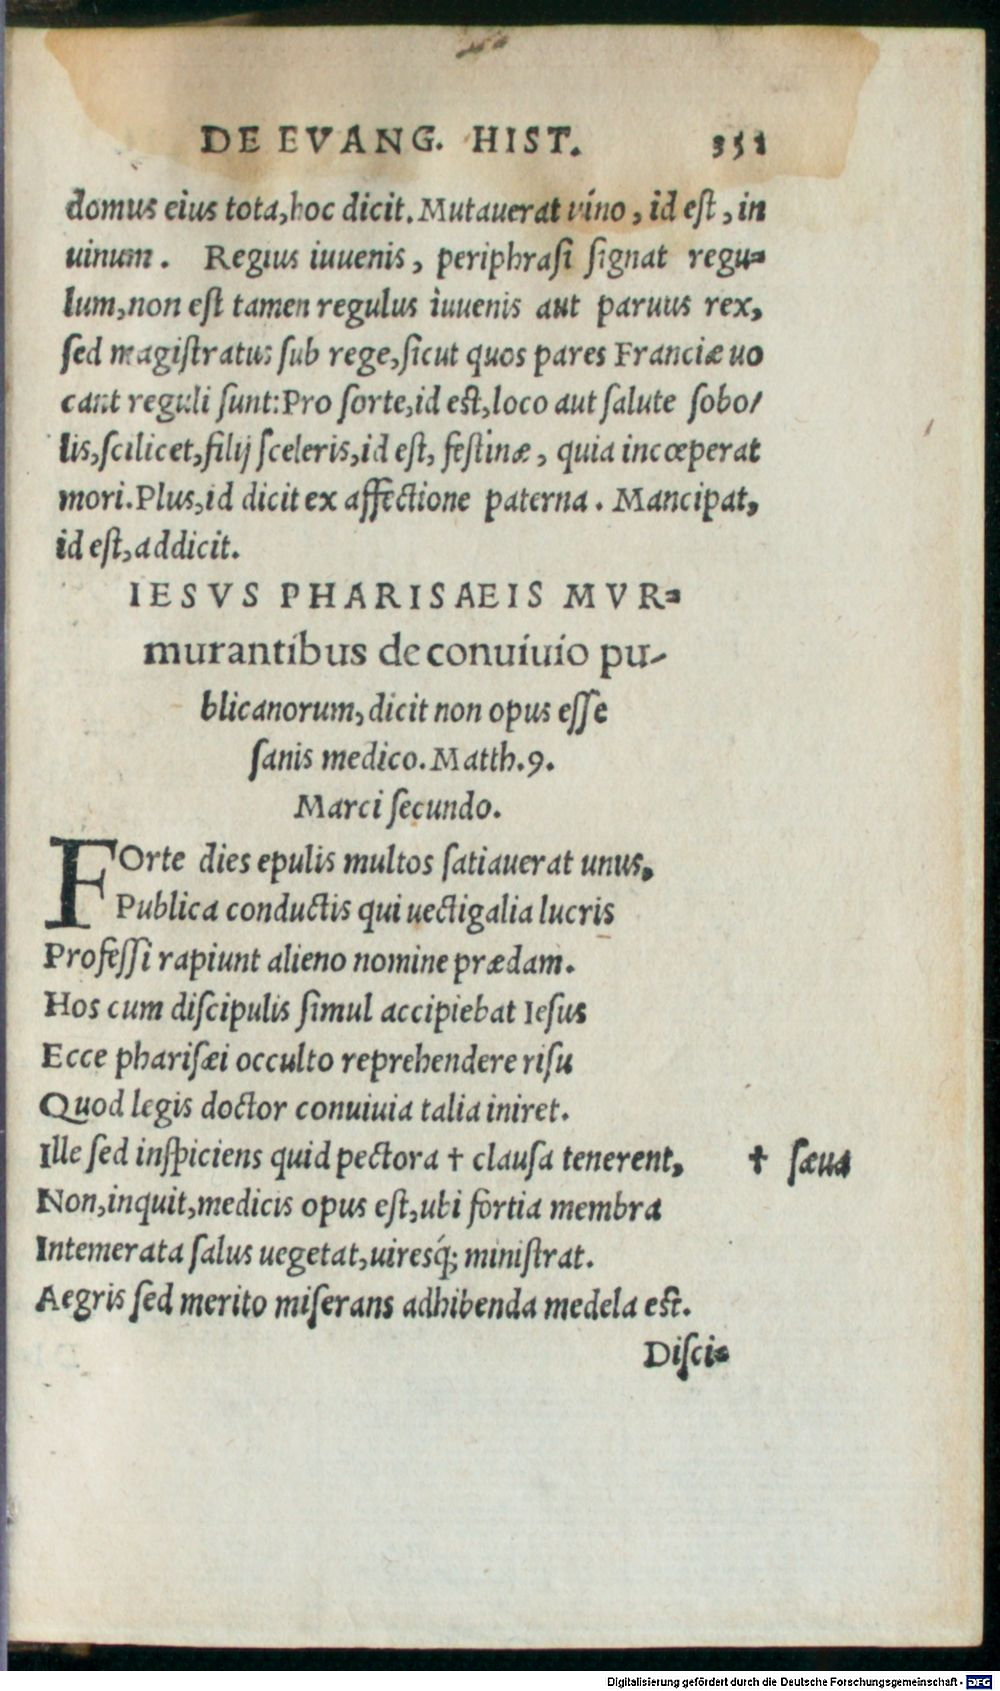 DE EVANG. HIST. 351
domus eius tota, hoc dicit. Mutauerat vino, id est, in
uinum. Regius iuuenis, periphrasi signat regu-
lum, non est tamen regulus iuuenis aut paruus rex,
sed magistratus sub rege, sicut quos pares Franciæ uo
cant reguli sunt: Pro sorte, id est, loco aut salute sobo/
lis, scilicet, filij sceleris, id est, festinæ, quia incœperat
mori. Plus, id dicit ex affectione paterna. Mancipat,
id est, addicit.
IESVS PHARISAEIS MVR-
murantibus de conuiuio pu-
blicanorum, dicit non opus esse
sanis medico. Matth. 9.
Marci secundo.
FOrte dies epulis multos satiauerat unus,
Publica conductis qui uectigalia lucris
Professi rapiunt alieno nomine prædam.
Hos cum discipulis simul accipiebat Iesus
Ecce pharisæi occulto reprehendere risu
Quod legis doctor conuiuia talia iniret.
Ille sed inspiciens quid pectora † clausa tenerent, † sæua
Non, inquit, medicis opus est, ubi fortia membra
Intemerata salus uegetat, uiresq́; ministrat.
Aegris sed merito miserans adhibenda medela est.
Disci-
Digitalisierung gefördert durch die Deutsche Forschungsgemeinschaft - DFG